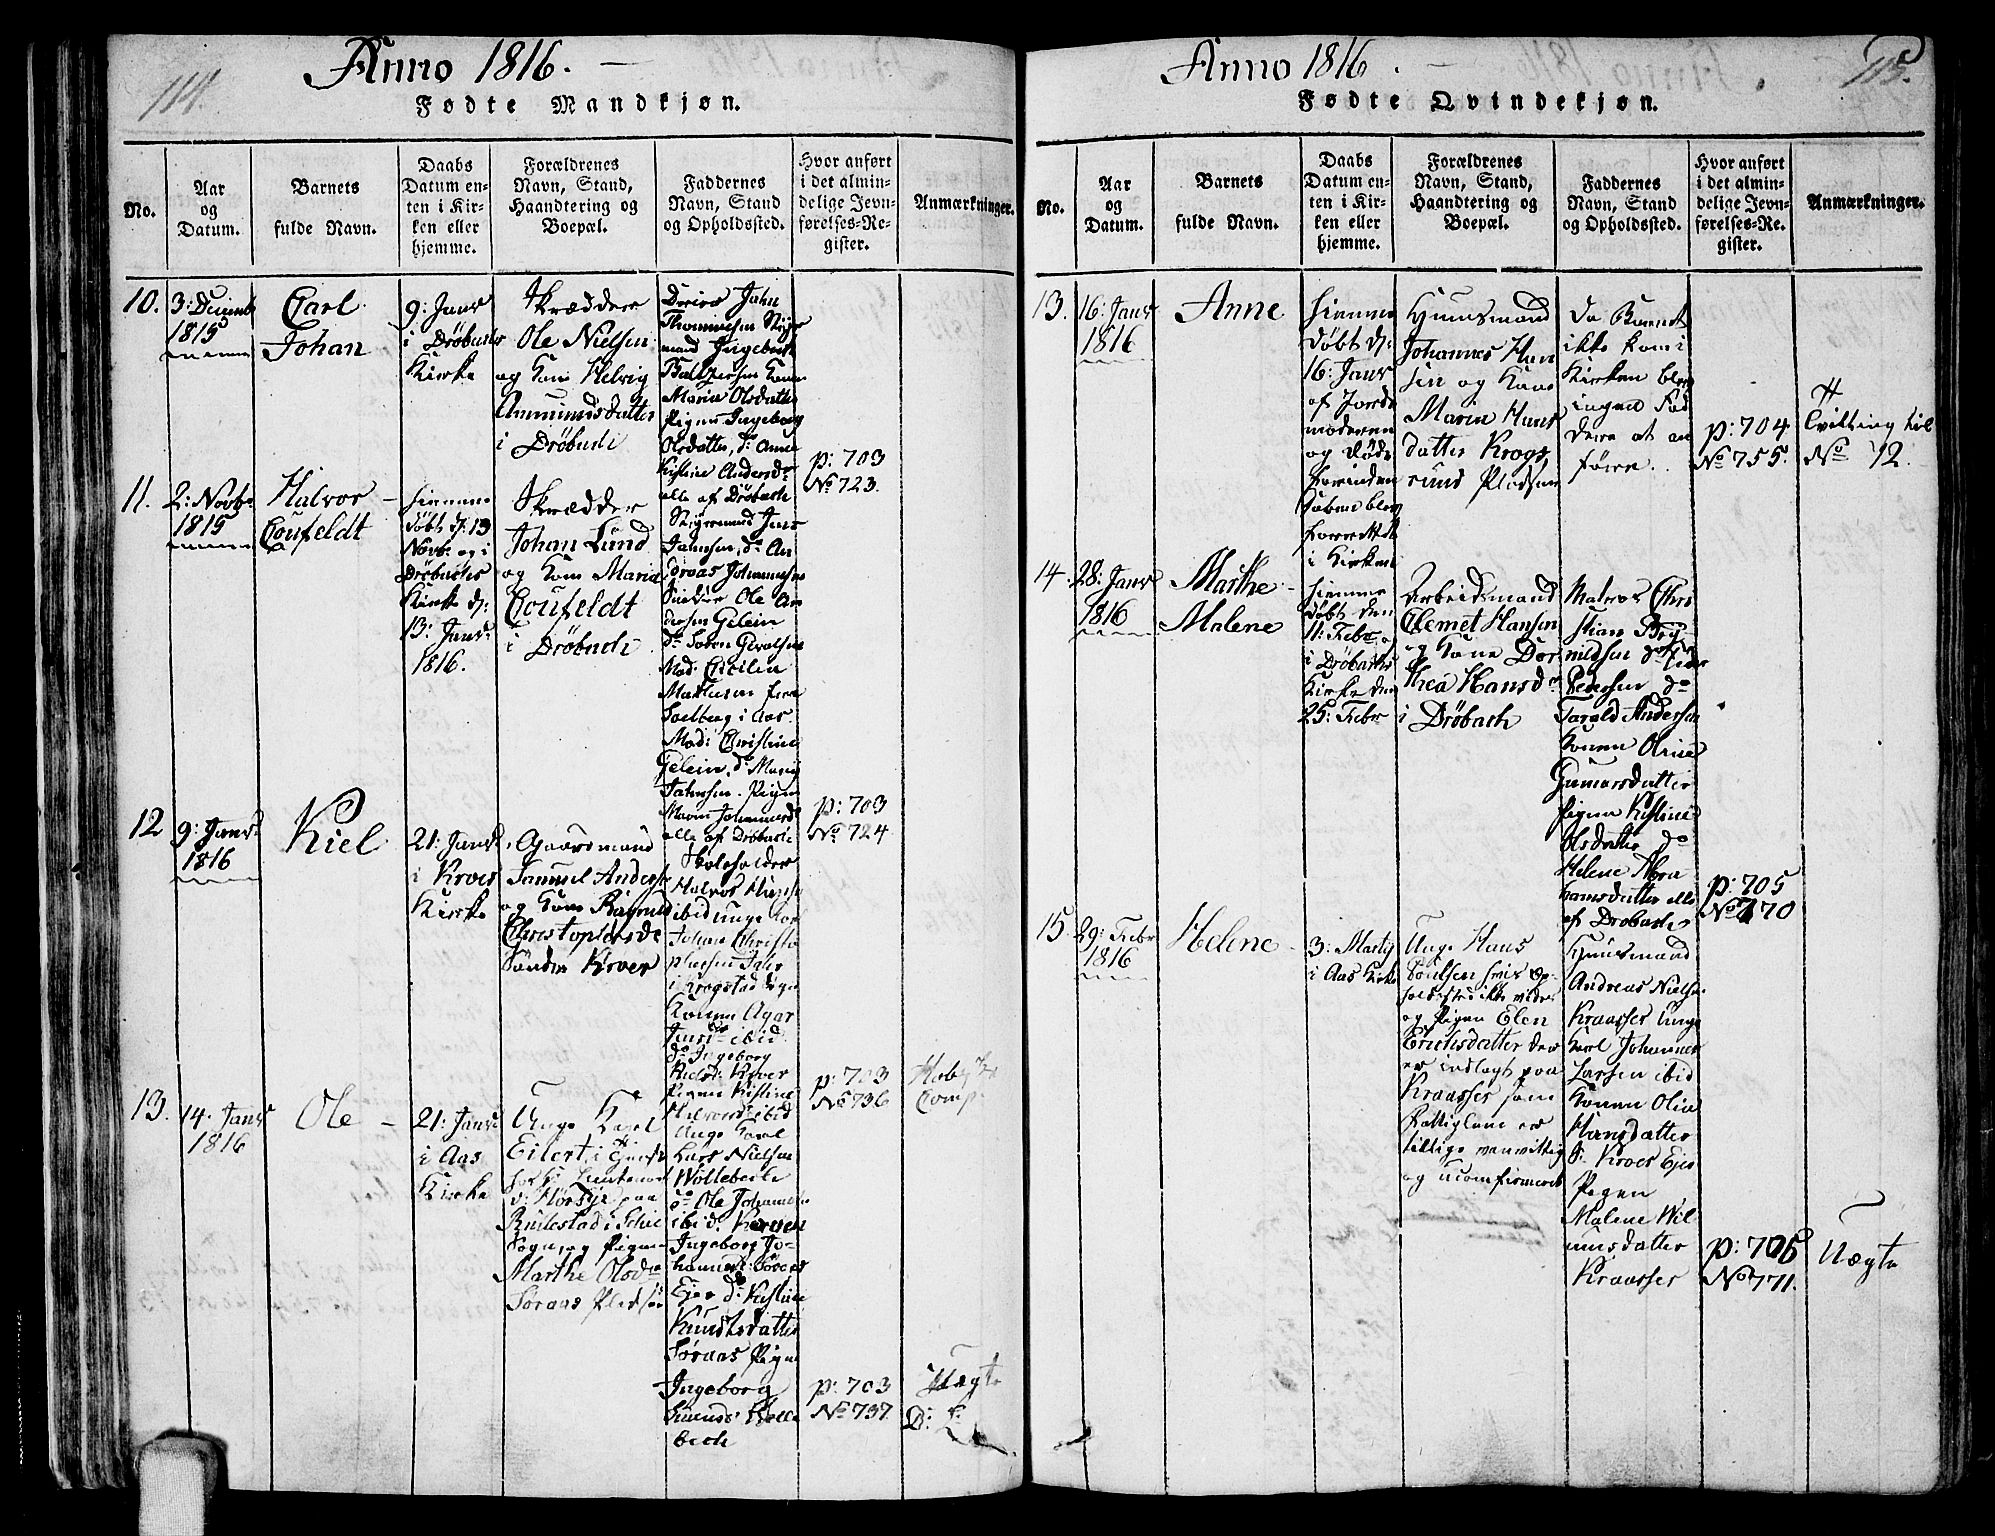 114.
Anno 1816.
Fødte Mandkjøn.
No.
Aar
og
Datum.
Barnets
fulde Navn.
Daabs
Datum en-
ten i Kir-
ken eller
hjemme.
Forældrenes
Navn, Stand,
Haandtering og
Boepæl.
Faddernes
Navn, Stand
og Opholdssted.
Hvor anført
i det almin-
delige Jevn-
førelses-Re-
gister.
Anmærkninger.
10.
3: Decemb
1815
Carl
Johan
9: Janr
i Drøbachs
Kirke
Skrædder
Ole Nielsen
og Kone Helvig
Ammundsdatter
i Drøbach
Johan
Thommesen Styr
mand Ingebreth
Baltzersen Kone
Maria Olsdatter
Pigen Ingeborg
Olsdatter, do Anne
Kistine Andersdr
alle af Drøbach
p: 703
No 723.
11.
2: Novbr
1815
Halvor
Coufeldt
hiemme
døbt d: 13
Novbr og i
Drøbachs
Kirke d:
13: Janr
1816.
Skrædder
Johan Lund
og Kone Maria
Coufeldt
i Drøbach
Styrmand Jens
Jahnsen, do An
dreas Johannesen
Ole An
dersen Gelein
do Søren
Mad: Cicilia
Mathesen
Soelberg i Aas
Mad: Christine
Gelein, do Maria
Jahnsen. Pigen
Maren Johannesd
alle af Drøbach
p: 703
No 724.
12
9: Janr
1816
Kiel
21: Janr
i Kroer
Kirke
Gaardmand
Samuel Anders
og Kone Ragnild
Christophersdr
Søndre Kroer
Skoleholder
Halvor Hans
ibid unge Kar
Johan Christo
phersen
i Krogstad Sogn
Konen Agar
Jensdr ibid
do Ingeborg
Kroer
Pigen Kistine
Halvorsdr ibid
p: 703
No 736
Comp.
13.
14. Janr
1816
Ole
21: Janr
i Aas
Kirke
Unge Karl
Eilert i Tjeneste
hos Lieutenant
v: paa
i Schie
Sogn, og Pigen
Marthe Olsdr
Søraas Pladsen
Unge Karl
Lars Nielsen
Wollebech
do Ole Johannesen
ibid: Konen
Ingeborg Jo-
hannesd: Søraas
Ejer do Kistine
Knudtsdatter
Søraas Pigen
Ingeborg
Wolle
bech
p: 703
No 737.
Uægte
115.
Anno 1816.
Fødte Qvindekjøn.
No.
Aar
og
Datum.
Barnets
fulde Navn.
Daabs
Datum en-
ten i Kir-
ken eller
hjemme.
Forældrenes
Navn, Stand,
Haandtering og
Boepæl.
Faddernes
Navn, Stand
og Opholdssted.
Hvor anført
i det almin-
delige Jevn-
førelses-Re-
gister.
Anmærkninger.
13.
16: Janr
1816
Anne
hiemme
døbt d:
16: Janr
af Jorde
moderen
og døde
forinden
Daaben blev
forrettet
i Kirken
Huusmand
Johannes Han
sen og Kone
Maria Hans
datter Krogs
rund Pladsen
Da Barnet
ikke kom i
Kirken blev
ingen Fad
dere at an
føre.
p: 704
No 755.
#
Tvilling til
No 12.
14.
28: Janr
1816
Marthe
Malene
hiemme
døbt den
11: Febr og
i Drøbachs
Kirke den
25: Febr
Arbeidsmand
Clemet Hansen
og Kone Dor
thea Hansdr
i Drøbach
Matros Chris
tian Bry
nildsen do Peder
Pedersen do
Tarald Andersen
Konen Oline
Gunnarsdatter
Pigen Kistine
Olsdatter do
Helene Abra
hamsdatter alle
af Drøbach
p: 705
No 770
15.
29: Febr
1816
Helene
3: Martz
i Aas Kirke
Unge Hans
Poulsen hvis Op-
holdssted ikke vides
og Pigen Elen
Erichsdatter der
er indlagt paa
Kraasser som
Fattiglem er
tillige vanvittig
og uconfirmeret
Huusmand
Andreas Nielsen
Kraasser Unge
Karl Johannes
Larsen ibid
Konen Olia
Hansdatter
S. Kroer Ejer
Pigen
Malene Wil
umsdatter
Kraasser
p: 705
No 771.
Uægte